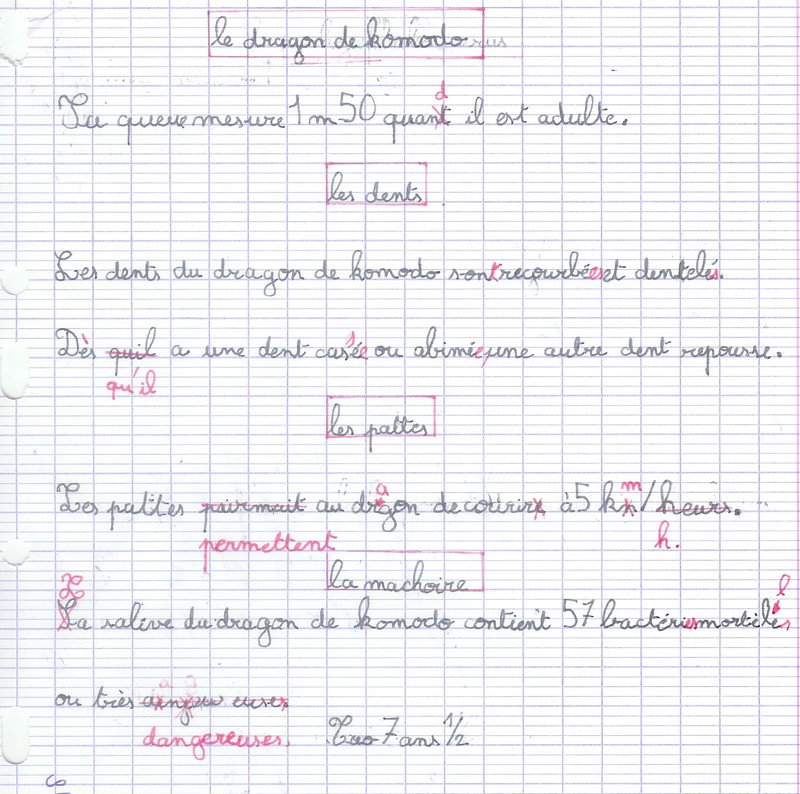 le dragon de komodo
d
Sa queue mesure 1 m 50 quant il est adulte.
les dents
Les dents du dragon de komodo sont recourbées et dentelés.
s
Dès quil a une dent casée ou abimée, une autre dent repousse.
qu'il
les pattes
a m
Les patites pairmait au drgon de courir à 5 k /heurs.
permettent h.
la machoire
L l
La salive du dragon de komodo contient 57 bactéries mortélés
a a
ou très euses
dangereuses. Tao 7 ans 1/2